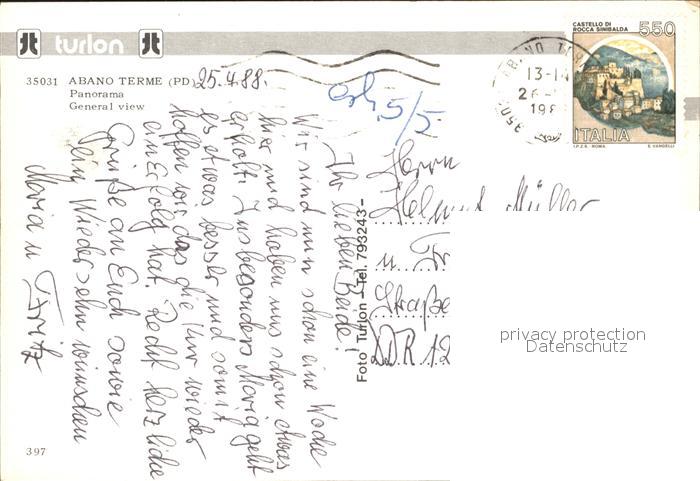 turlon
35031 ABANO TERME (PD)
Panorama
General view
25.4.88.
Ihr lieben Beide!
Wir sind nun schon eine Woche
hier und haben uns schon etwas
erholt. Insbesonders Maria geht
es etwas besser und somit
hoffen wir das die Kur wieder
ein Erfolg hat. Recht herzliche
Grüße an Euch sowie
Wiedersehn wünschen
Maria u Fritz
397
Foto Turlon - Tel. 793243-
erh. 5/5
ABANO TER
13-14
26
198
3503
CASTELLO DI
ROCCA SINIBALDA
550
ITALIA
I.P.Z.S. ROMA
E. VANGELLI
Herrn
Helmut Müller
u. Fr
Straße
DDR 12
privacy protection
Datenschutz